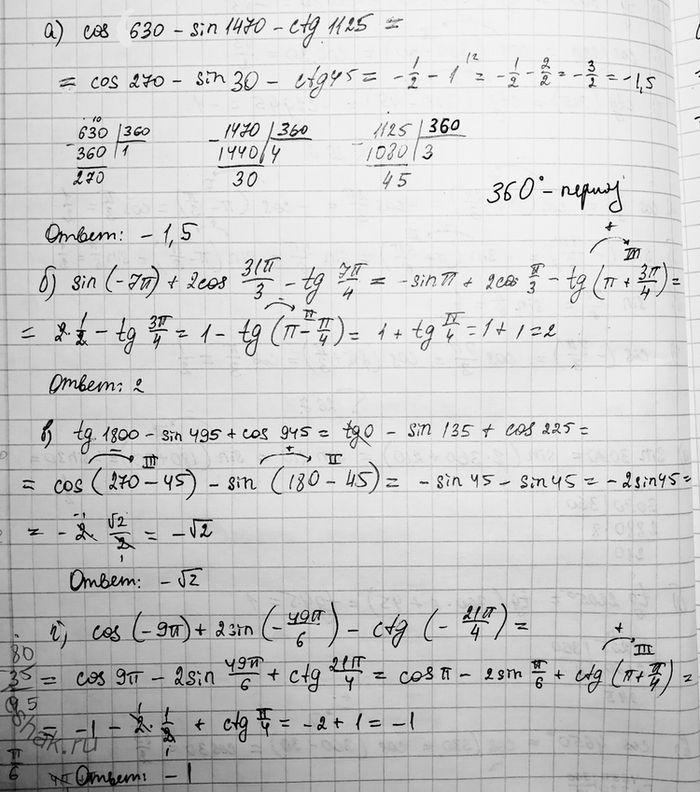 а) cos (630 - sin 1470 - ctg 1125 =
= cos 270 - sin 30 - ctg 45 = -1/2 - 1 = -1/2 - 2/2 = -3/2 = -1,5
630 | 360
360 | 1
270
1470 | 360
1440 | 4
30
1125 | 360
1080 | 3
45
360° - период
Ответ: - 1,5
б) sin (-7π) + 2cos 31π/3 - tg 7π/4 = - sin π + 2cos π/3 - tg (π + 3π/4) =
= 2 · 1/2 - tg 3π/4 = 1 - tg (π - π/4) = 1 + tg π/4 = 1 + 1 = 2
Ответ: 2
в) tg 1800 - sin 495 + cos 945 = tg 0 - sin 135 + cos 225 =
= cos (270 - 45) - sin (180 - 45) = - sin 45 - sin 45 = - 2 sin 45 =
= - 2 · √2/2 = - √2
Ответ: - √2
г) cos (-9π) + 2 sin (- 49π/6) - ctg (- 21π/4) =
= cos 9π - 2 sin 49π/6 + ctg 21π/4 = cos π - 2 sin π/6 + ctg (π + π/4) =
= -1 - 2 · 1/2 + ctg π/4 = -2 + 1 = -1
Ответ: - 1